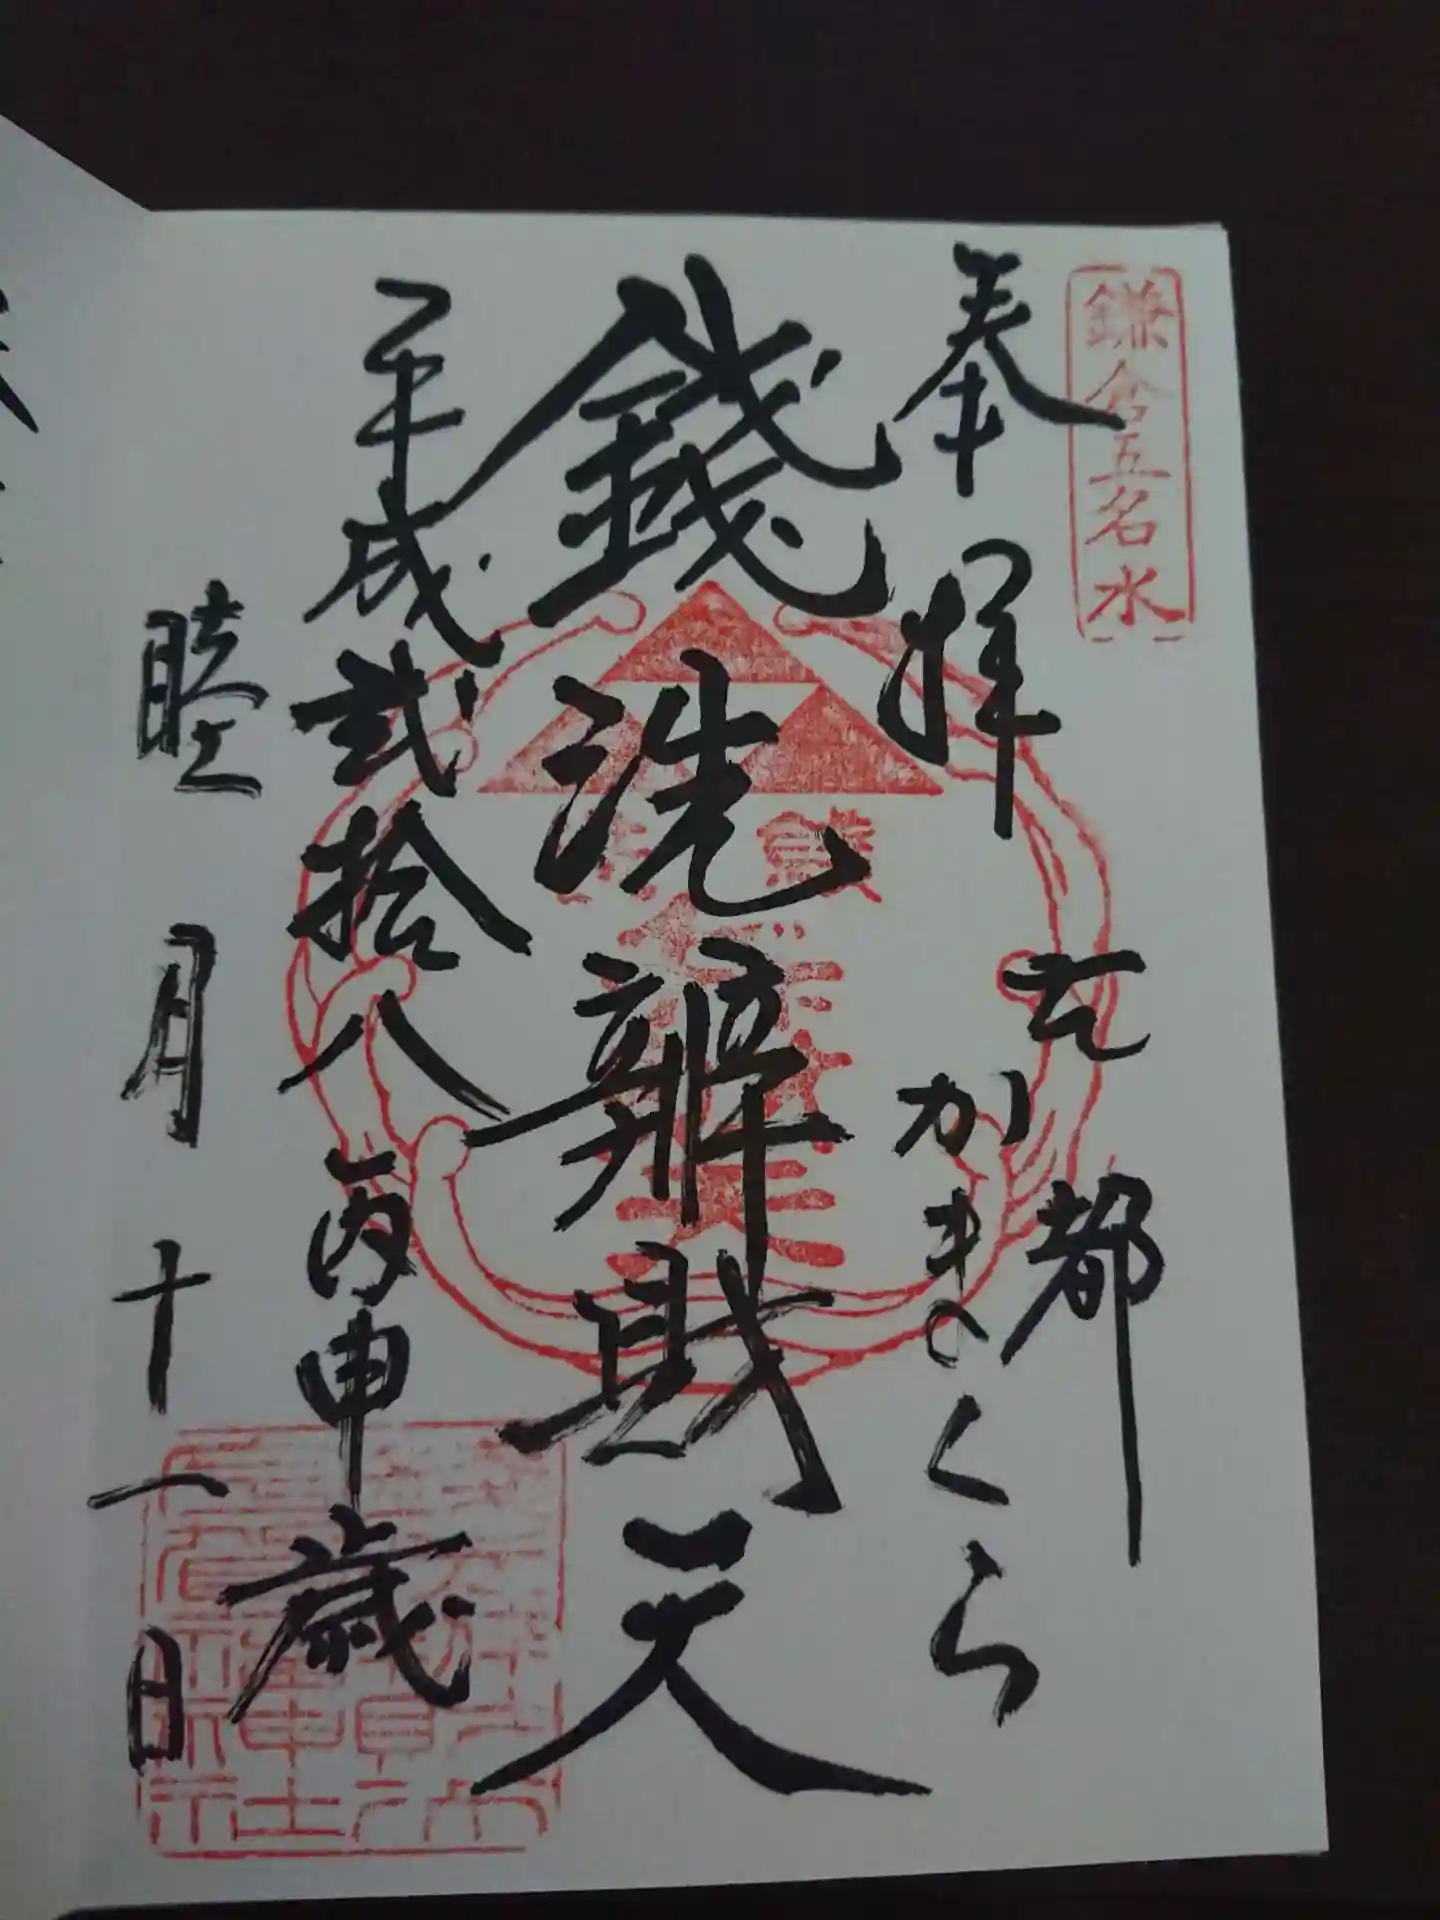 鎌倉五名水
奉拝
古都
かまくら
錢洗辨財天
平成弐拾八丙申歳
睦月十一日